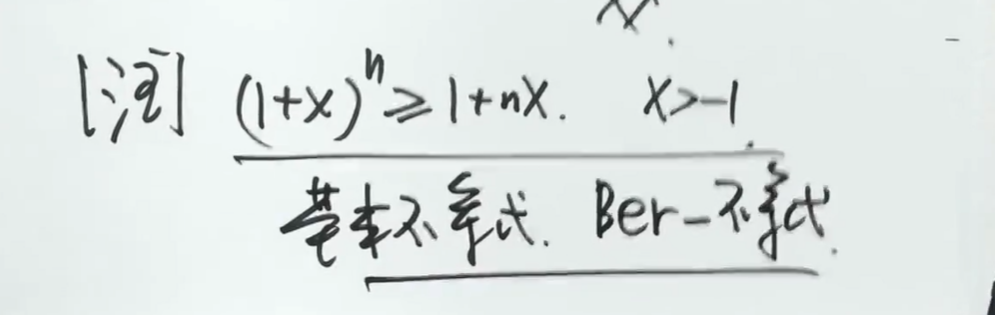 [注] (1+x)ⁿ ≥ 1+nx. x>-1.
基本不等式. Ber-不等式.